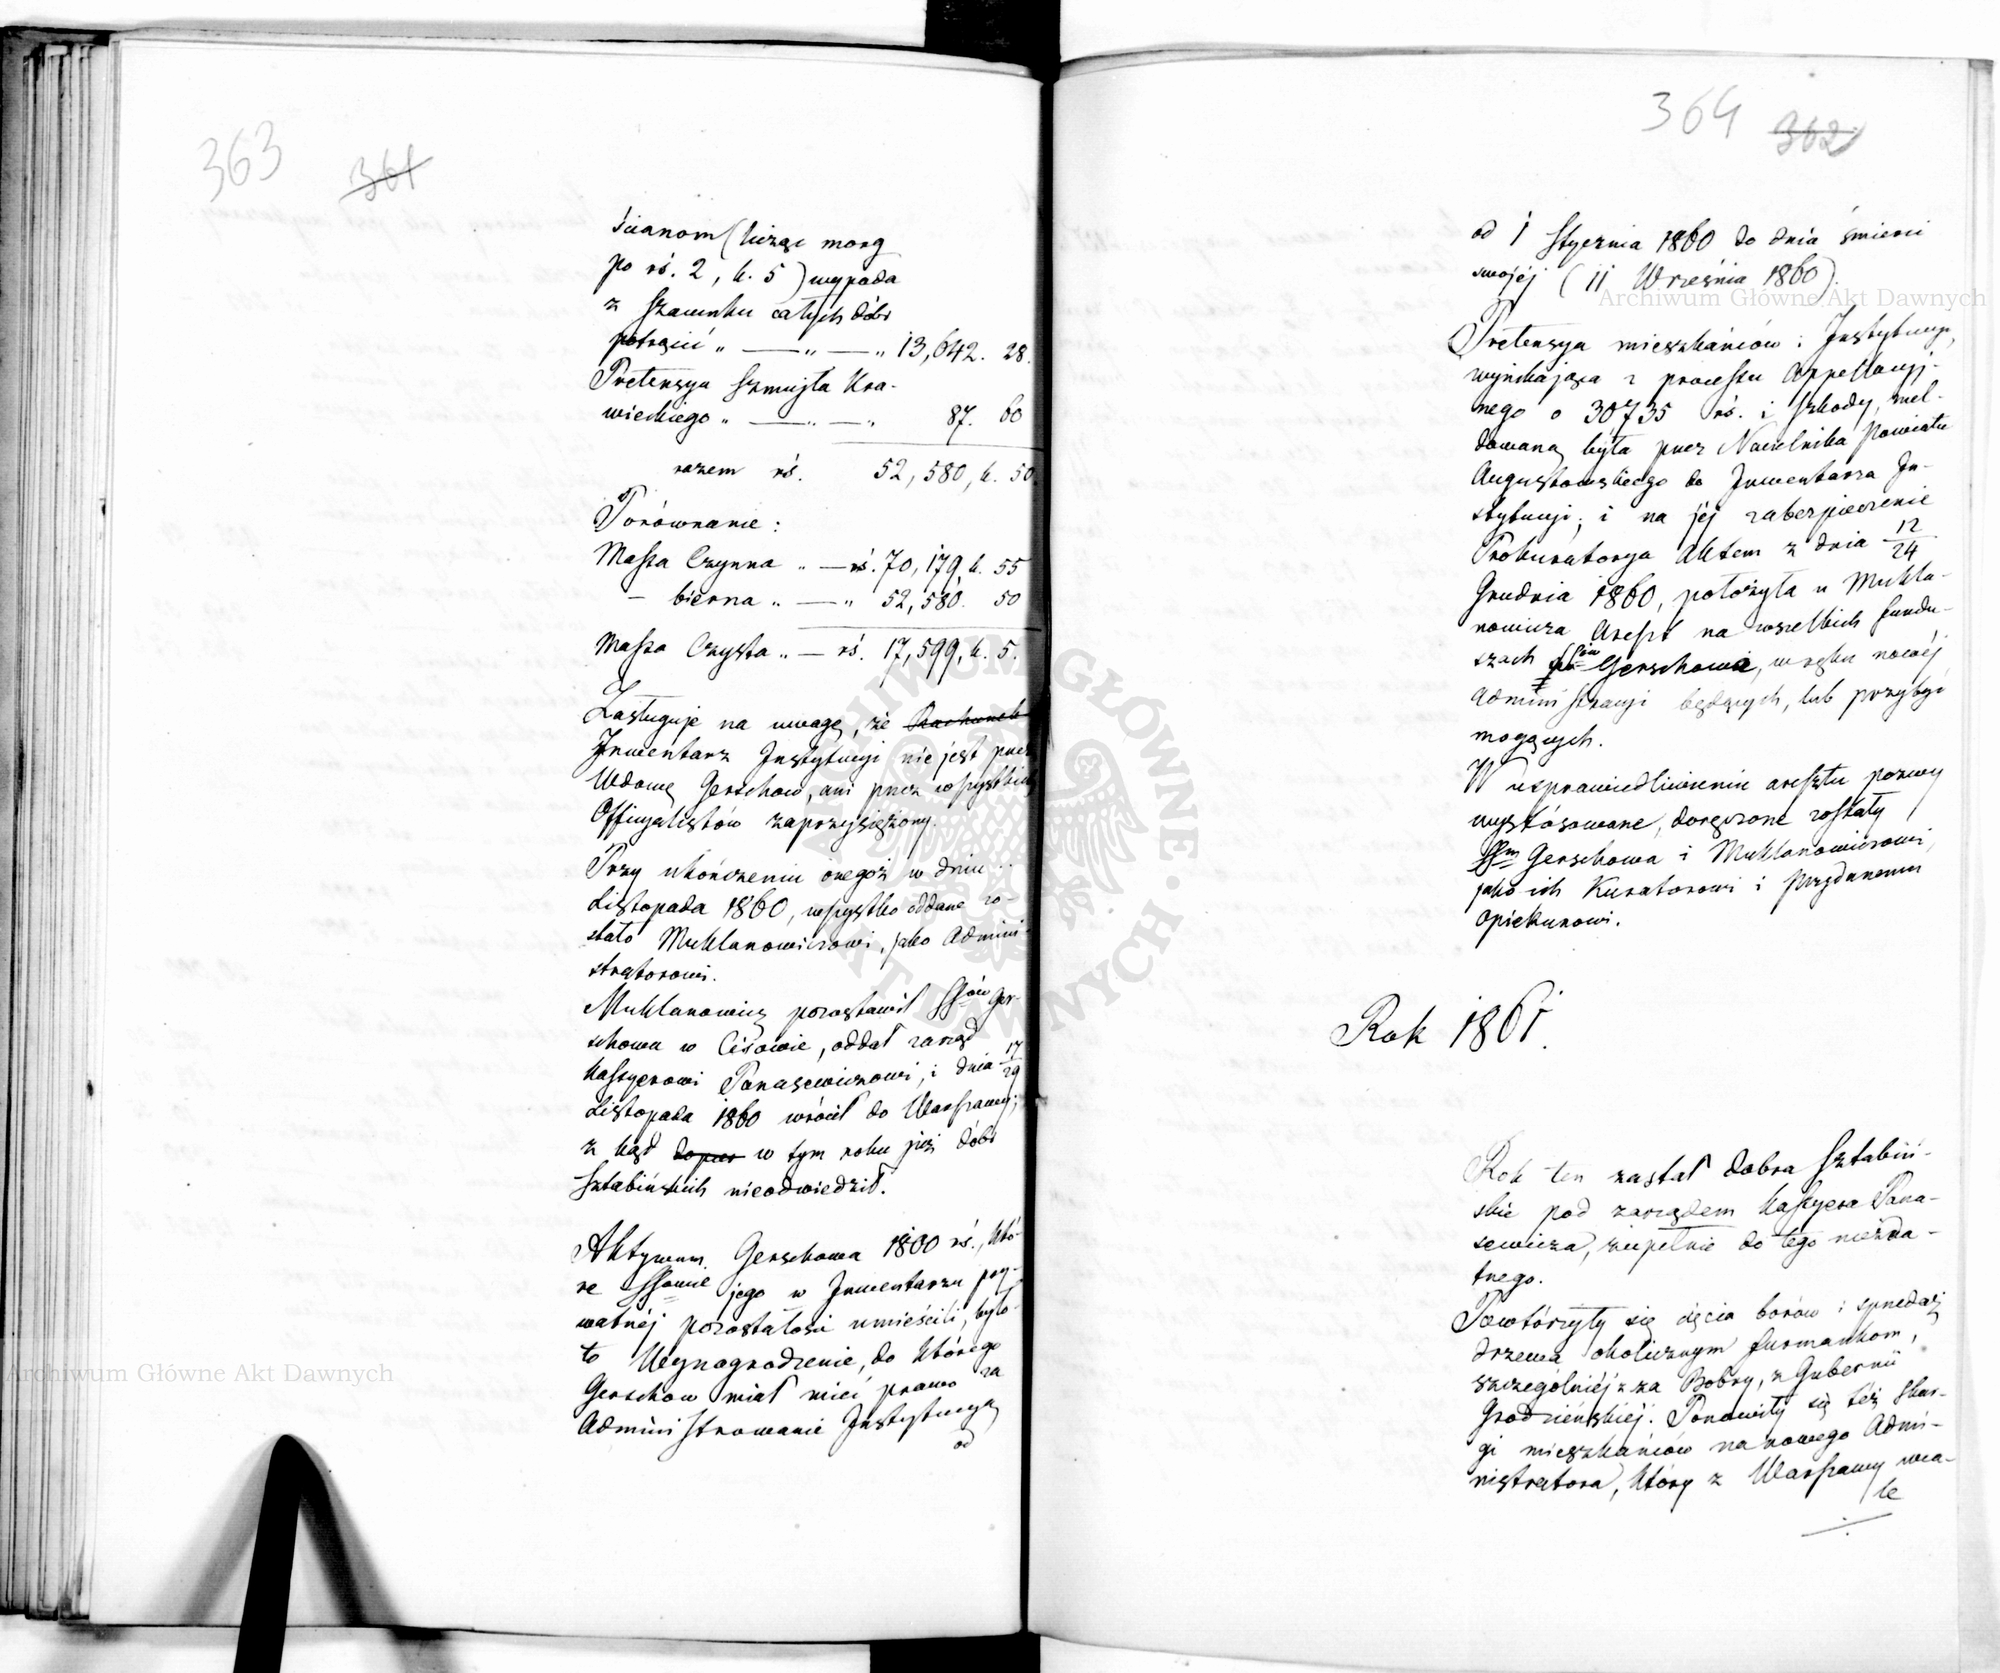 363 361
ścianom (licząc morg
po rś. 2, k. 5) wypada
z szacunku całych dóbr
potrącić „ — „ — „ 13,642. 28.
Pretensya Szmujła Kra-
wieckiego „ — „ — „ 87. 60
razem rś. 52,580, k. 50
Porównanie:
Massa Czynna „ — rś. 70,179, k. 55
— bierna „ — „ 52,580. 50
Massa Czysta „ — rś. 17,599, k. 5.
Zasługuje na uwagę, że Rachunek
Inwentarz Instytucyi nie jest przez
Wdowę Gerschow, ani przez wszystkich
Officyalistów zaprzysiężony.
Przy ukończeniu onegoż w dniu ..
Listopada 1860, wszystko oddane zo-
stało Muklanowiczowi, jako Admini-
stratorowi.
Muklanowicz pozostawił SSów Ger-
schowa w Cisowie, oddał zarząd
Kassyerowi Panasewiczowi, i dnia 17/29
Listopada 1860 wrócił do Warszawy;
z kąd dopier w tym roku już dóbr
Sztabińskich nieodwiedził.
Aktywum Gerschowa 1800 rś., któ-
re SSowie jego w Inwentarzu pry-
watnéj pozostałości umieścili, było
to Wynagrodzenie, do którego
Gerschow miał mieć prawo za
Administrowanie Instytucyą
od
364 362
od 1 Stycznia 1860 do dnia śmierci
swojéj (11 Września 1860).
Pretensya mieszkańców i Instytucyi,
wynikająca z processu Appellacyj-
nego o 30735 rś. i szkody, mel-
dowaną była przez Naczelnika Powiatu
Augustowskiego do Inwentarza In-
stytucyi; i na jéj zabezpieczenie
Prokuratorya Aktem z dnia 12/24
Grudnia 1860, położyła u Mukła-
nowicza Areszt na wszelkich fundu-
szach SSów Gerschowa, w ręku nowéj
Administracyi będących, lub przybyć
mogących.
W usprawiedliwieniu aresztu pozwy
wystósowane, doręczone zostały
SSm Gerschowa i Muklanowiczowi,
jako ich Kuratorowi i Przydanemu
Opiekunowi.
Rok 1861.
Rok ten zastał dobra Sztabiń-
skie pod zarządem Kassyera Pana-
sewicza, zupełnie do tego niezda-
tnego.
Powtórzyły się cięcia borów i sprzedaż
drzewa okolicznym furmankom,
szczególniéj z za Bobry, z Gubernii
Grodzieńskiéj. Ponowiły się też skar-
gi mieszkańców na nowego Admi-
nistratora, który z Warszawy wca-
le
Archiwum Główne Akt Dawnych
Archiwum Główne Akt Dawnych
ARCHIWUM GŁÓWNE AKT DAWNYCH